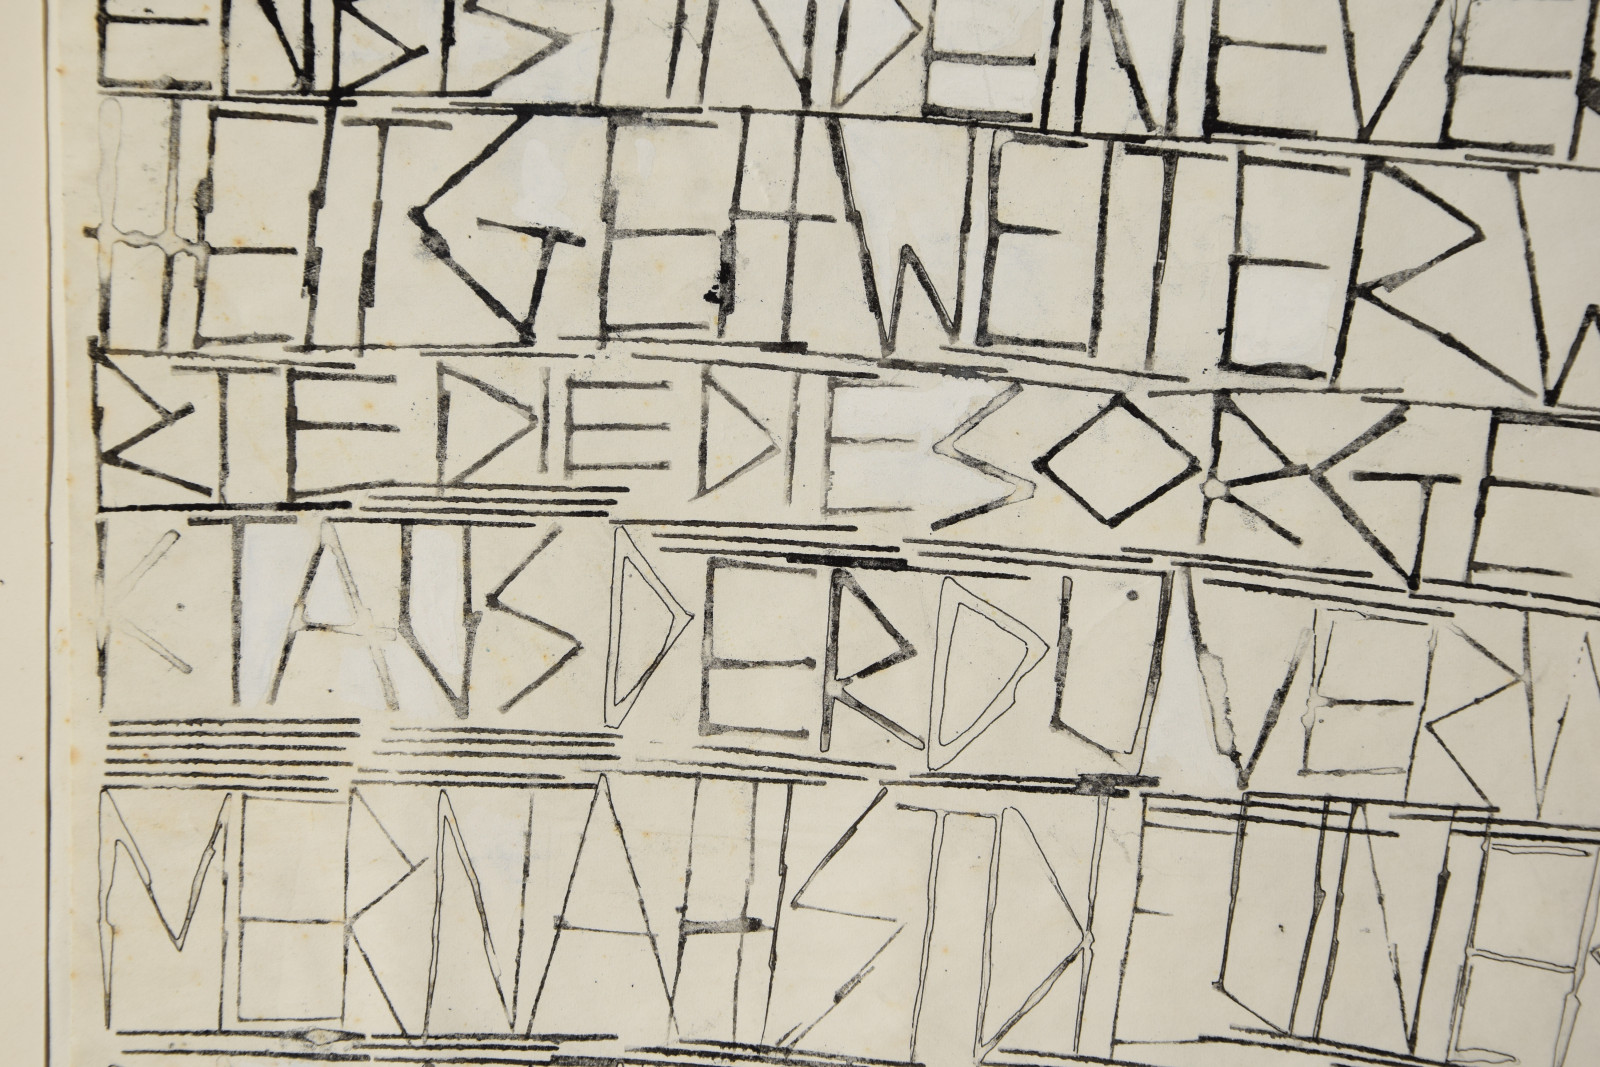 ENBISINDENEVER
HEITGEHTWEITERW
RTEDIEDIESORGE
KTAUSDERDUVERN
MERNAHSTDEINE